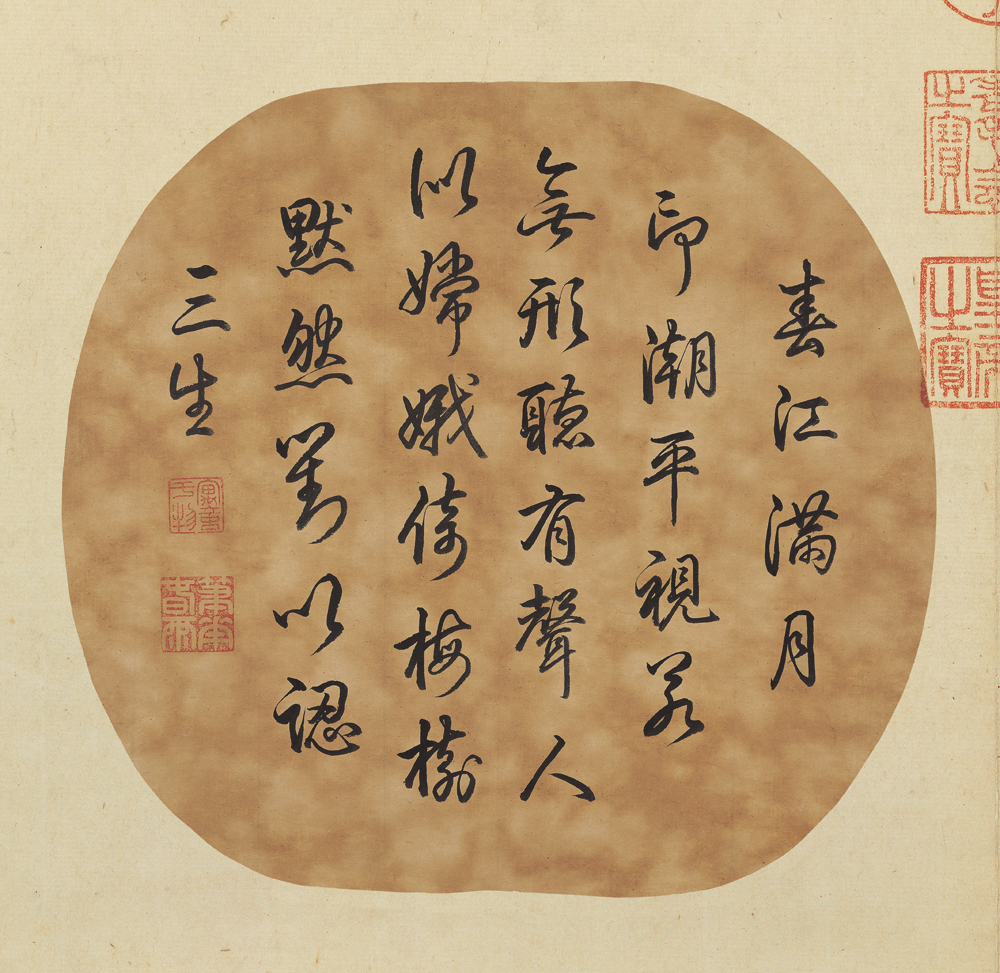 春江滿月
印潮平視若
無形聽有聲人
似嫦娥倚梅樹
默然對以認
三生
之寶
之寶